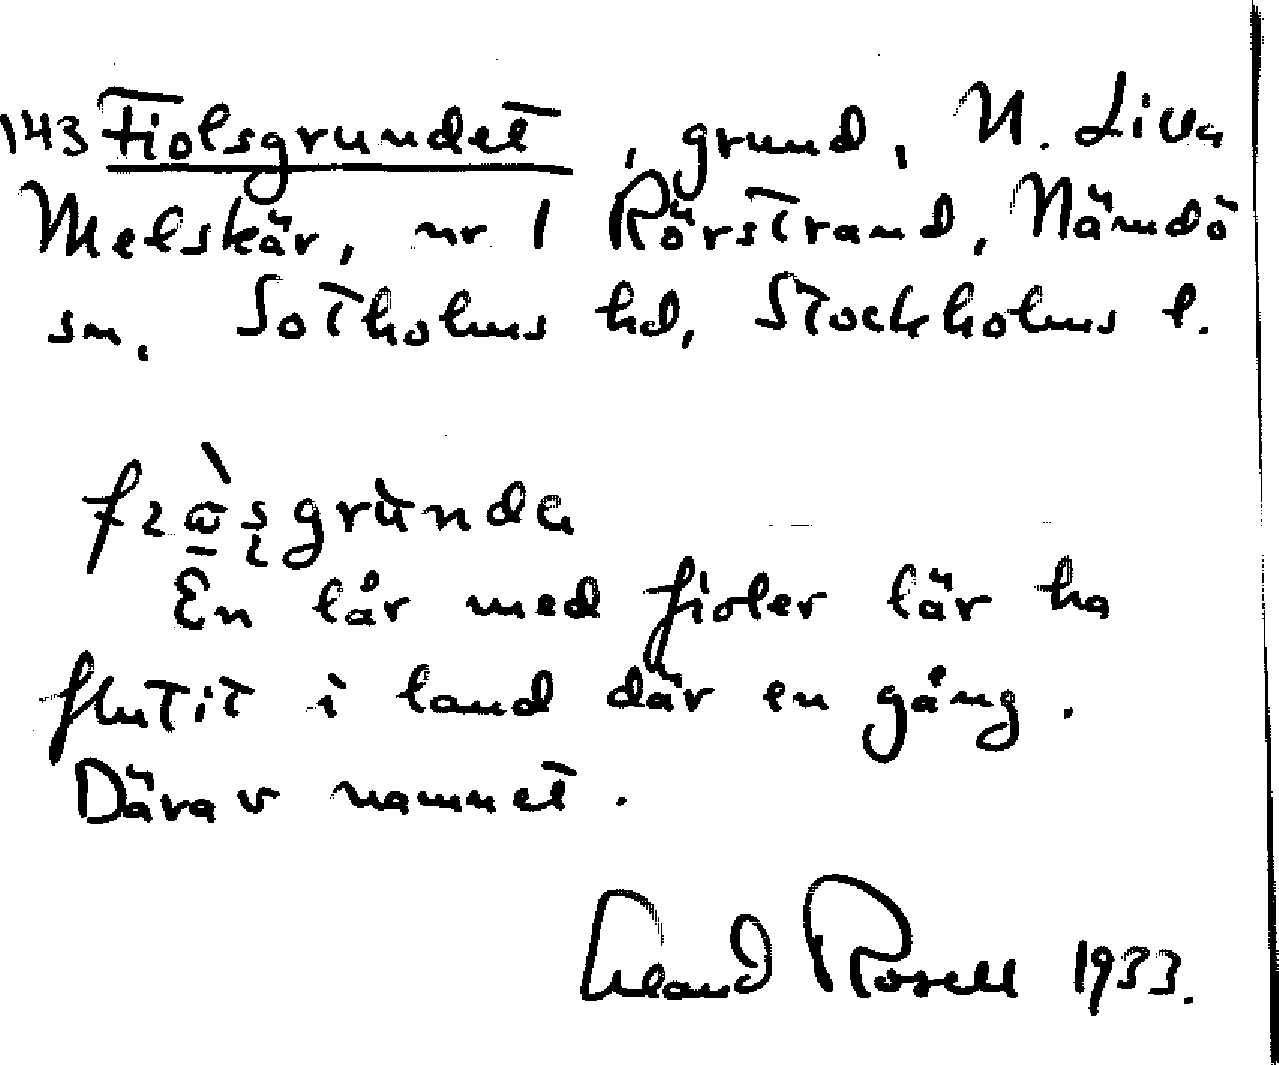 143 Fiolsgrundet, grund, N. Lilla
Melskär, nr 1 Rörstrand, Nämdö
sn, Sotholms hd, Stockholms l.
En lår med fioler lär ha
flutit i land där en gång.
Därav namnet.
Erland Rosell 1933.